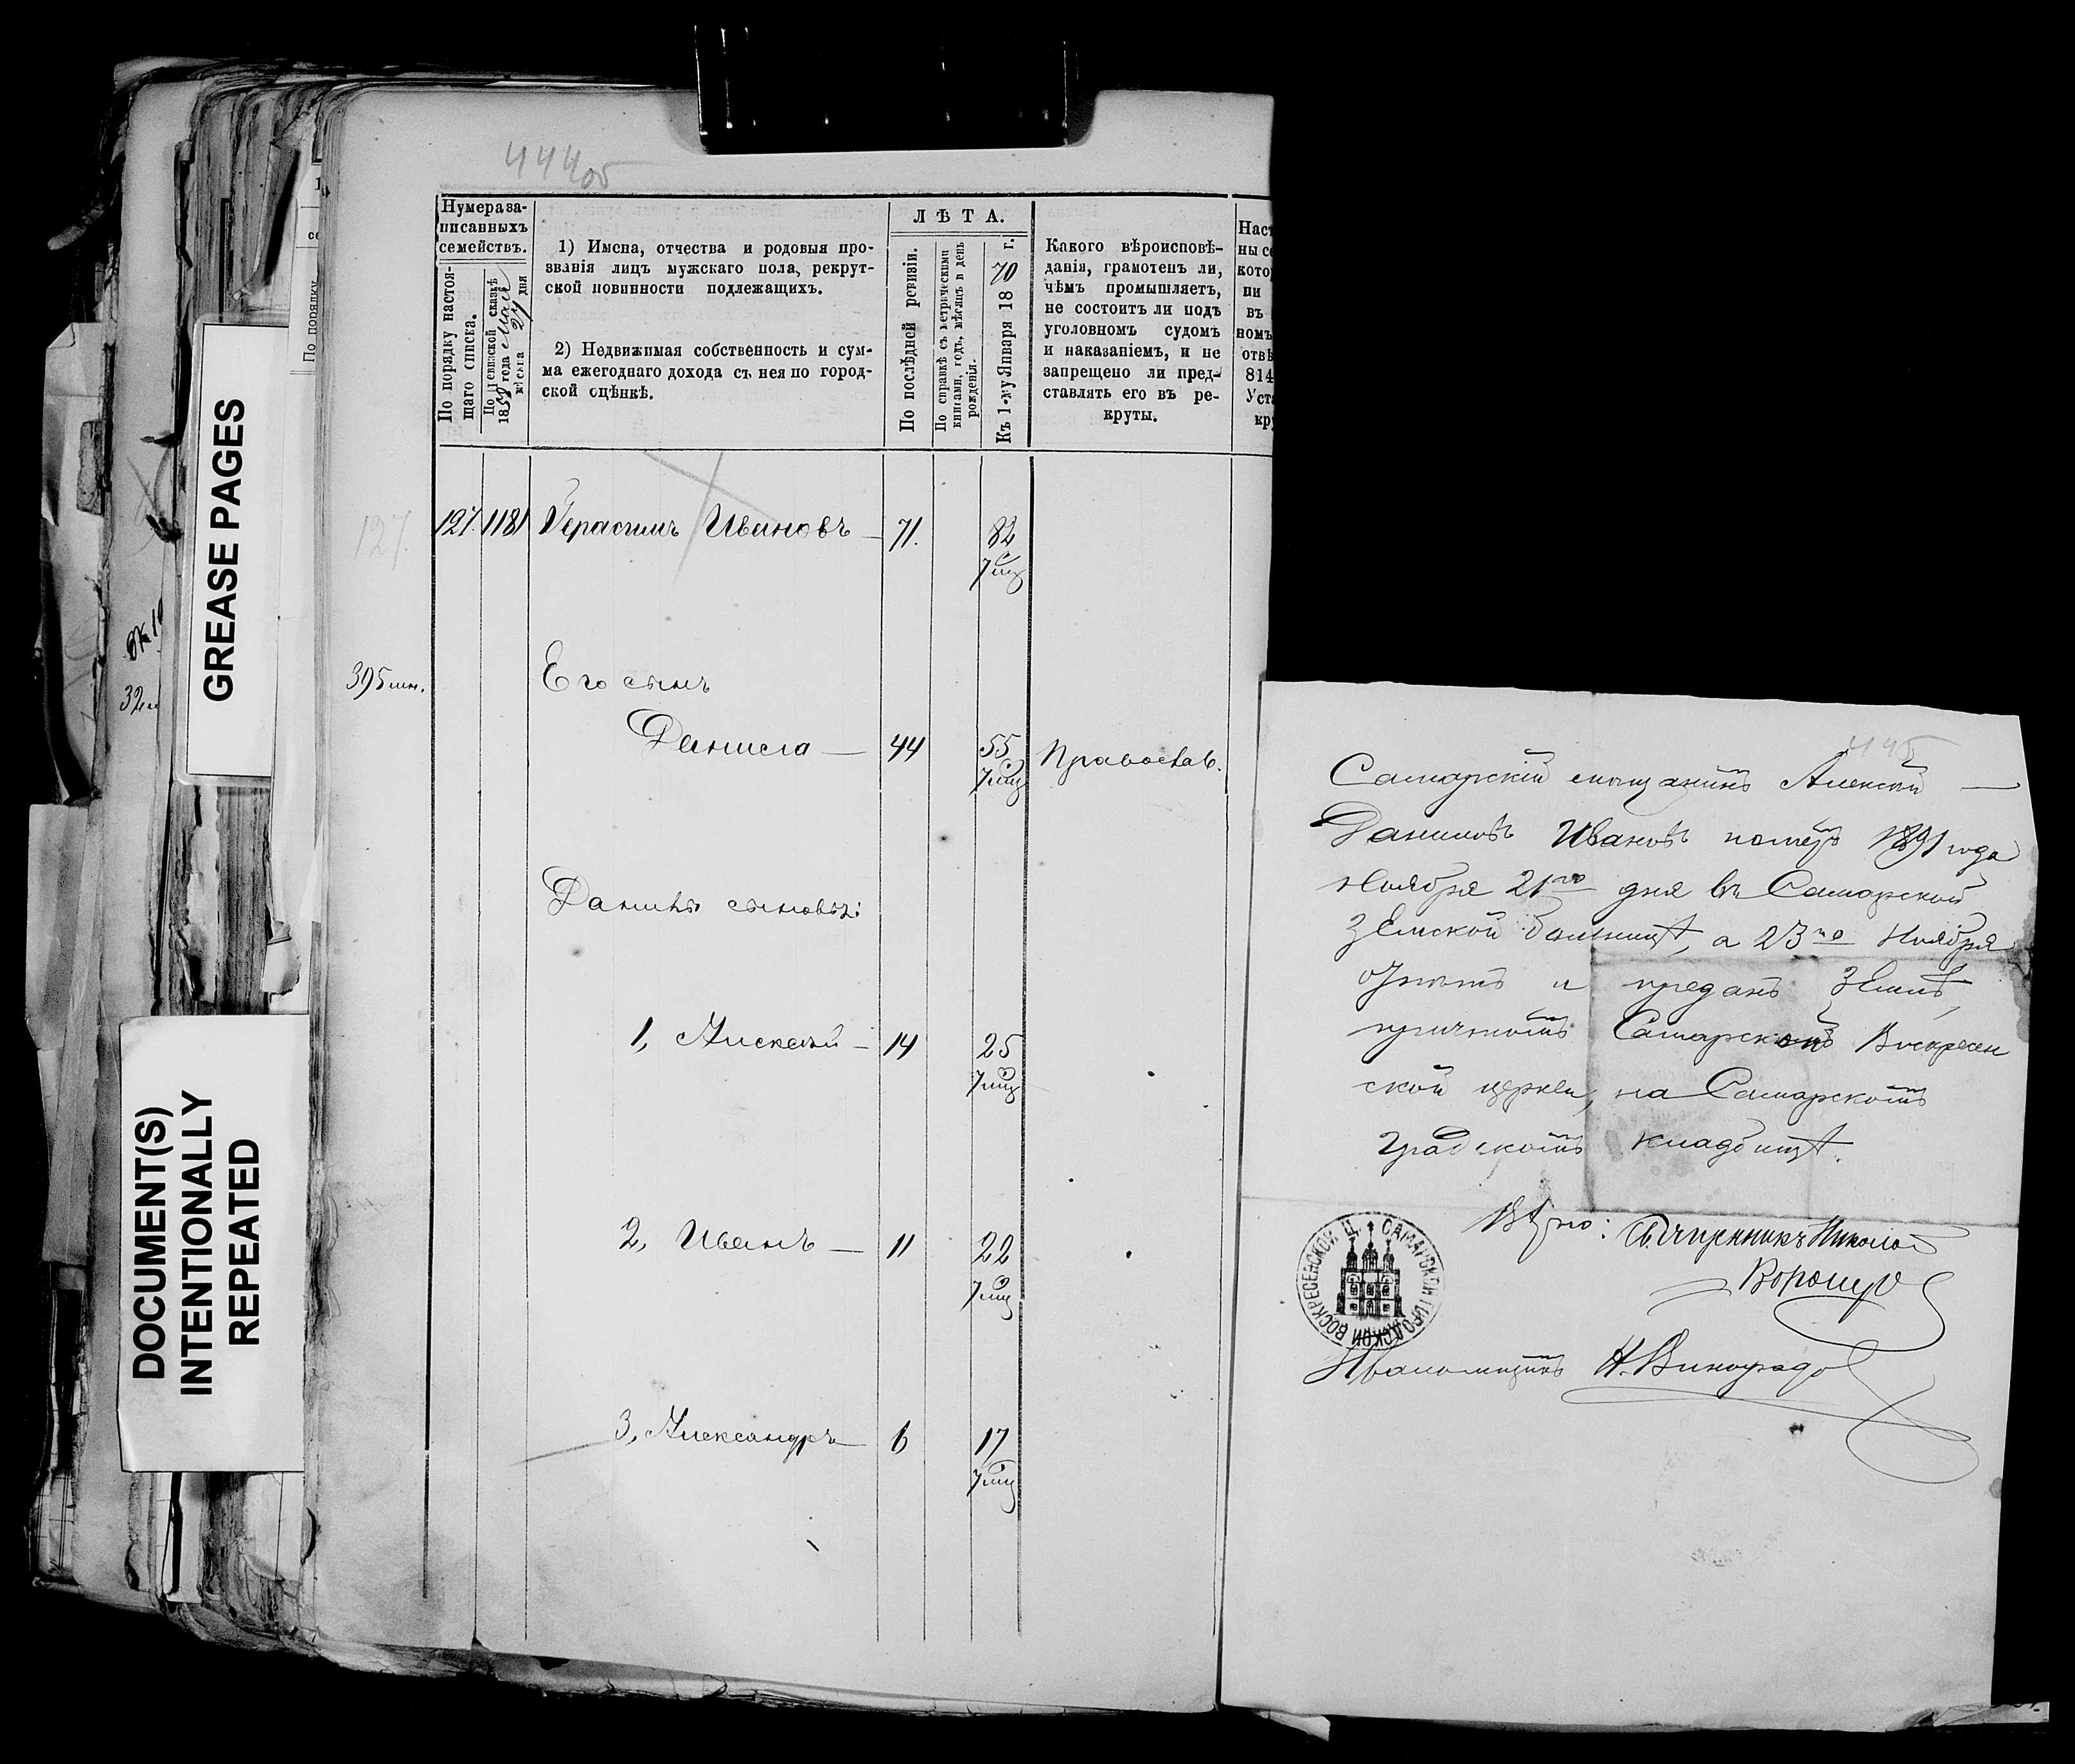 GREASE PAGES
DOCUMENT(S)
INTENTIONALLY
REPEATED
444об
Нумера за-
писанныхъ
семействъ.
По порядку настоя-
щаго списка.
По ревизской сказкѣ
185 года Мая
мѣсяца 24 дня
1) Имена, отчества и родовыя про-
званія лицъ мужскаго пола, рекрут-
ской повинности подлежащихъ.
2) Недвижимая собственность и сум-
ма ежегоднаго дохода съ нея по город-
ской оцѣнкѣ.
ЛѢТА.
По послѣдней ревизіи.
По справкѣ съ метрическими
книгами, годъ, мѣсяцъ и день
рожденія.
Къ 1-му Января 1870 г.
Какого вѣроисповѣ-
данія, грамотенъ ли,
чѣмъ промышляетъ,
не состоитъ ли подъ
уголовномъ судомъ
и наказаніемъ, и не
запрещено ли пред-
ставлять его въ ре-
круты.
127. 127. 1181 Герасимъ Ивановъ — 71. 82
7 мц
395 мн. Его сынъ
Данила — 44 55 Православ.
7 мц
Данилы сыновья:
1, Алексѣй — 14 25
7 мц
2, Иванъ — 11 22
7 мц
3, Александръ — 6 17
7 мц
445
Самарскій мѣщанинъ Алексѣй —
Даниловъ Ивановъ померъ 1891 года
Ноября 21го дня въ Самарской
Земской больницѣ, а 23го Ноября
отпѣтъ и преданъ землѣ
причтомъ Самарской Воскресен
ской церкви, на Самарскомъ
градскомъ кладбищѣ.
Вѣрно: Священникъ Николай
САМАРСКОЙ ГОРОДСКОЙ ВОСКРЕСЕНСКОЙ Ц.
Псаломщикъ Н. Виноградов